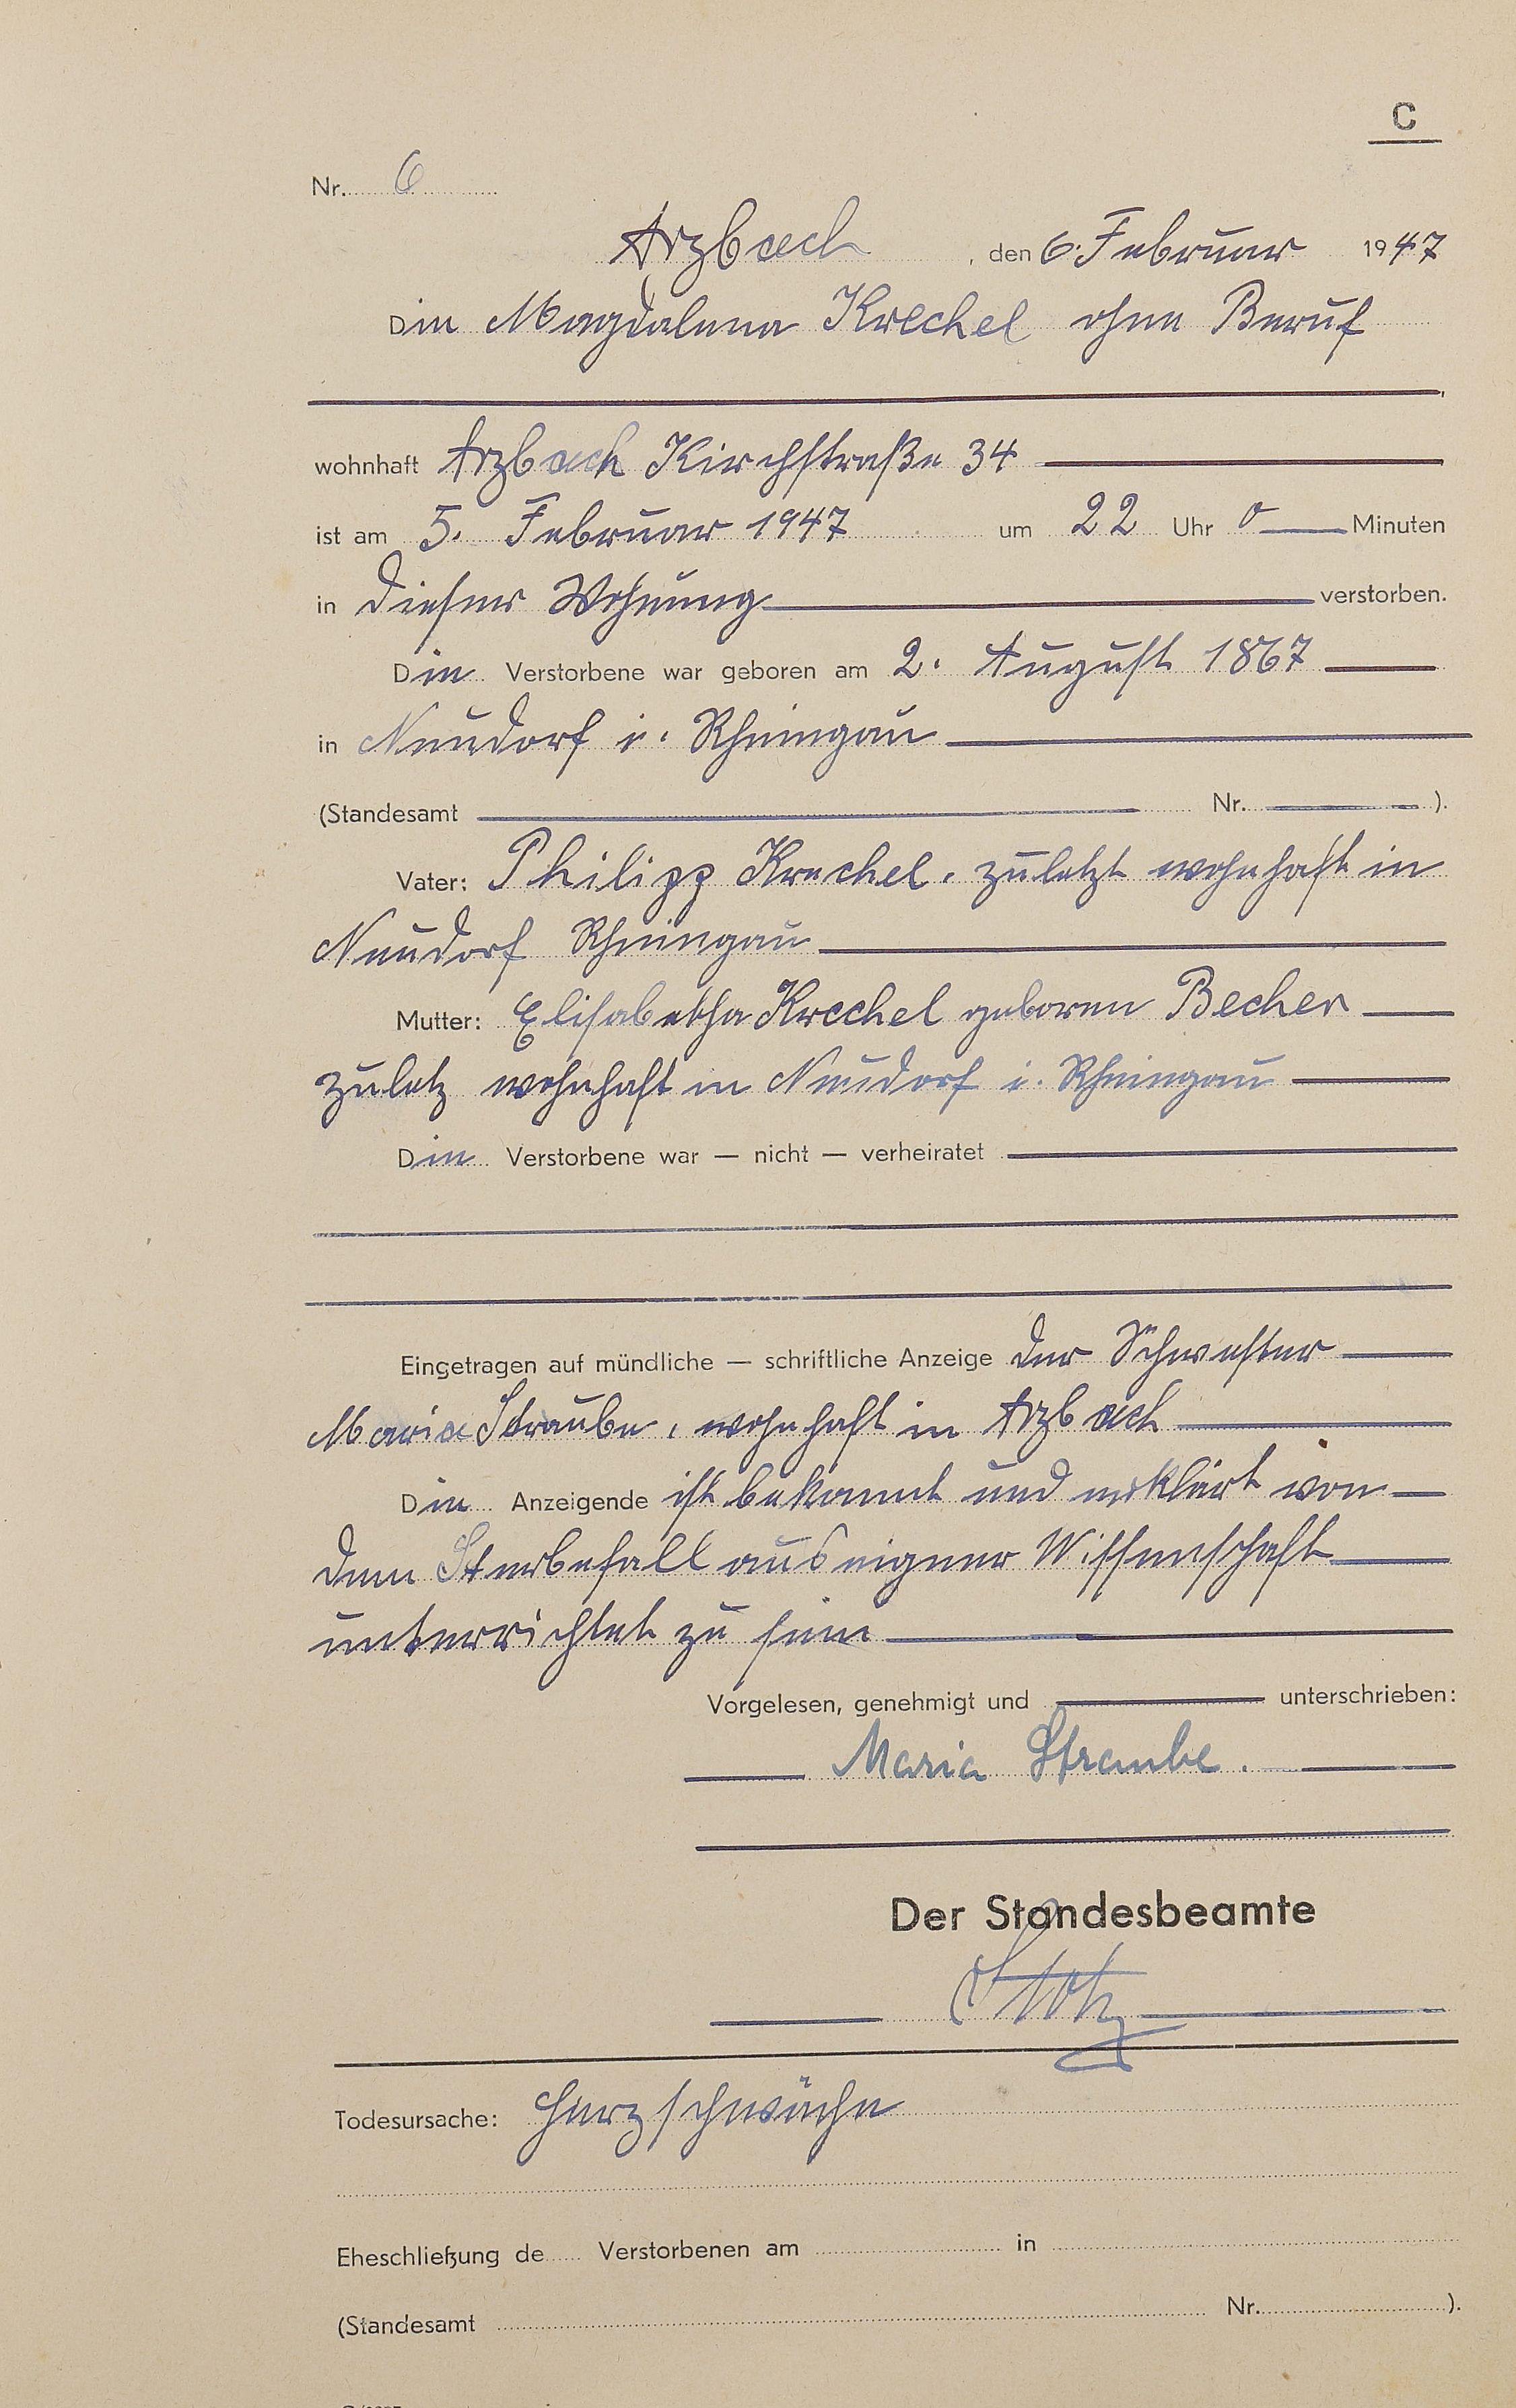 C
Nr. 6
Arzbach, den 6. Februar 1947
Die Magdalena Krechel ohne Beruf
wohnhaft Arzbach Kirchstraße 34
ist am 5. Februar 1947 um 22 Uhr 0 Minuten
in dieser Wohnung verstorben.
Die Verstorbene war geboren am 2. August 1867
in Neudorf i. Rheingau
(Standesamt Nr. ).
Vater: Philipp Krechel, zuletzt wohnhaft in
Neudorf Rheingau
Mutter: Elisabetha Krechel geboren Becher
zuletz wohnhaft in Neudorf i. Rheingau
Die Verstorbene war — nicht — verheiratet
Eingetragen auf mündliche — schriftliche Anzeige der Schwester
Maria Straube, wohnhaft in Arzbach
Die Anzeigende ist bekannt und erklärt von
dem Sterbefall aus eigner Wissenschaft
unterrichtet zu sein
Vorgelesen, genehmigt und unterschrieben:
Maria Straube.
Der Standesbeamte
Todesursache: Herzschwäche
Eheschließung de Verstorbenen am in
(Standesamt Nr. ).